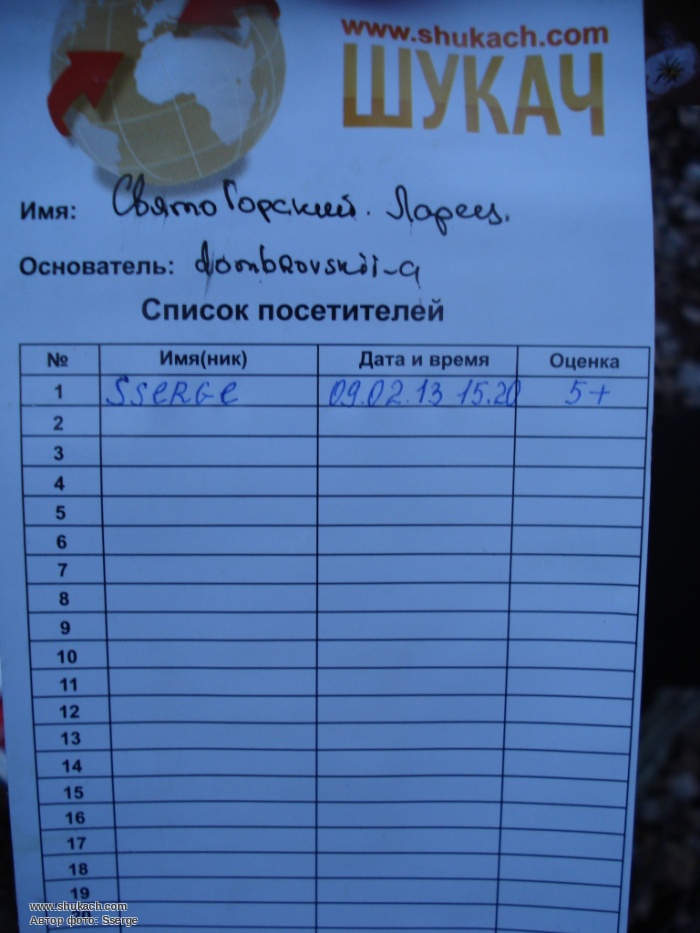 www.shukach.com
ШУКАЧ
Имя: СвятоГорский. Ларец.
Основатель: dombrovskii-a
Список посетителей
№ Имя(ник) Дата и время Оценка
1 SSERGE 09.02.13 15.20 5+
2
3
4
5
6
7
8
9
10
11
12
13
14
15
16
17
18
19
20
www.shukach.com
Автор фото: Sserge